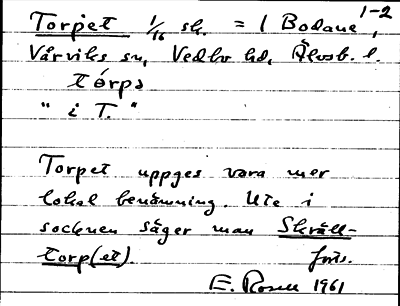 1-2
Torpet 1/16 sk. = 1 Bodane,
Vårviks sn, Vedbo hd, Älvsb. l.
tórpə
" i T. "
Torpet uppges vara mer
lokal benämning. Ute i
socknen säger man Skräll-
torp(et). forts.
E. Rosell 1961